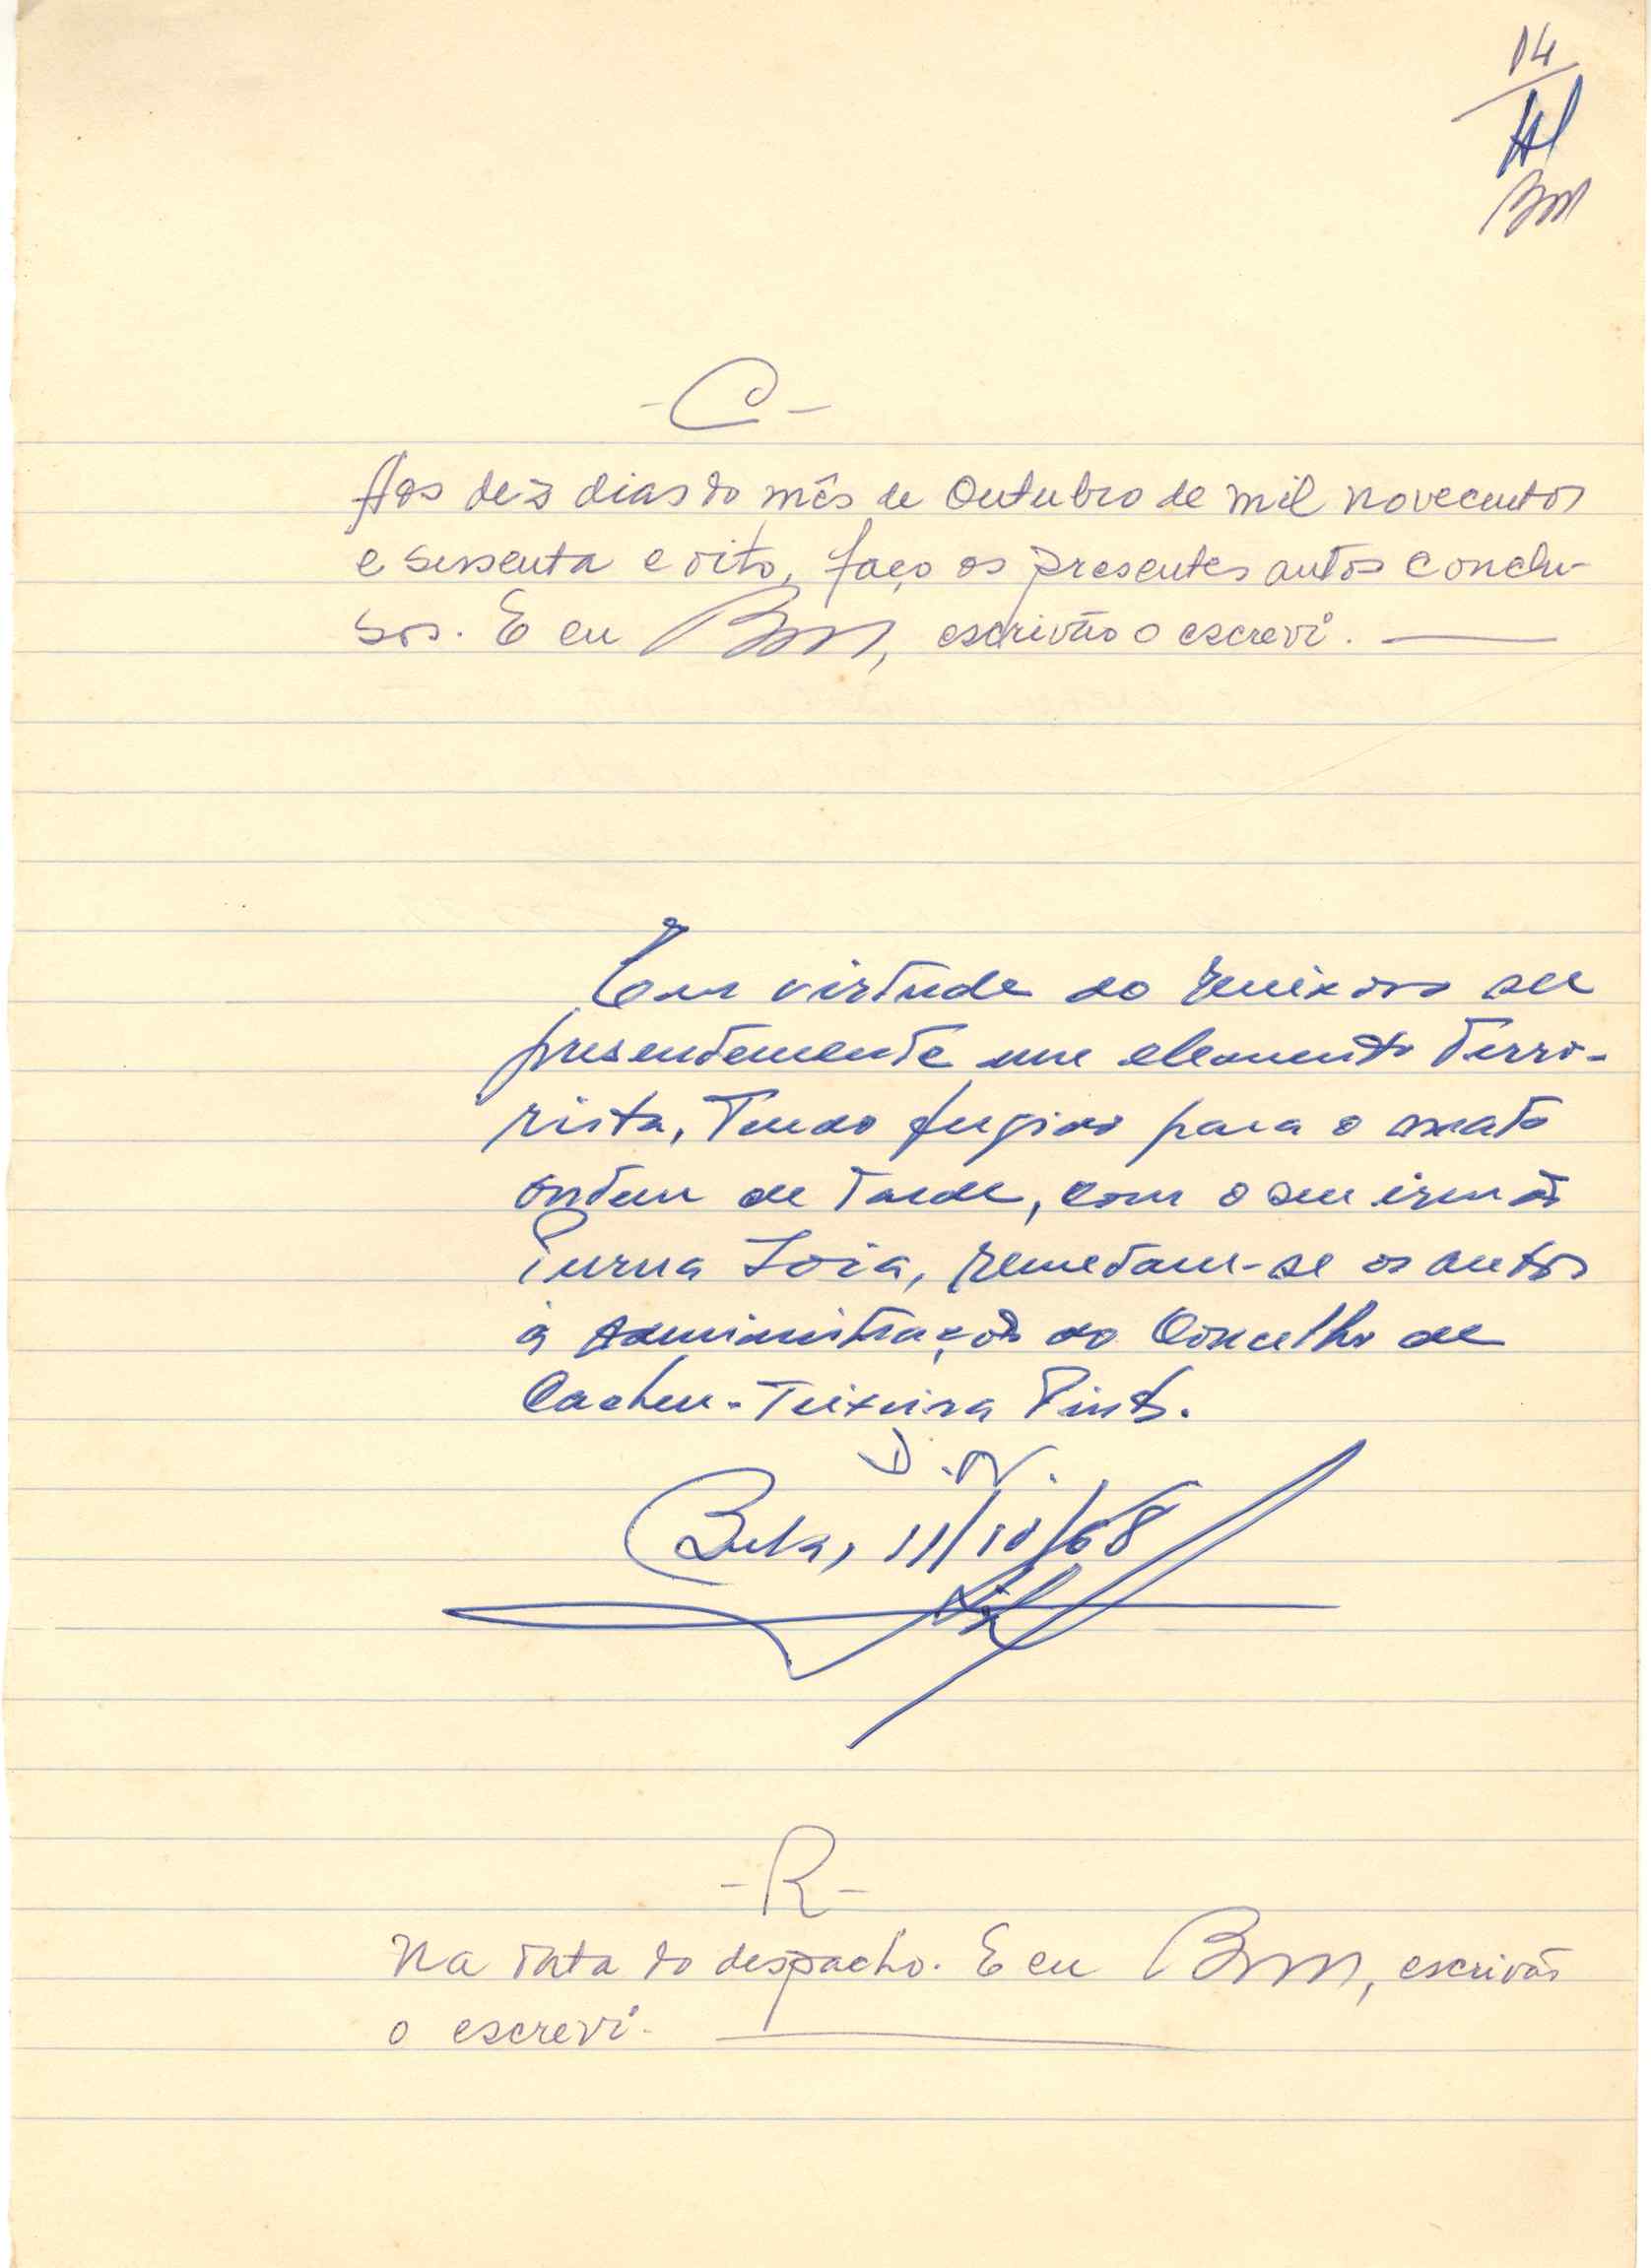 14
- C -
Aos dez dias do mês de Outubro de mil novecentos
e sessenta e oito, faço os presentes autos conclu-
sos. E eu , escrivão o escrevi.
Em virtude do queixoso ser
presentemente um elemento terro-
rista, tendo fugido para o mato
ontem de tarde, com o seu irmão
Loia, remetam-se os autos
à Administração do Concelho de
Cacheu-Teixeira Pinto.
D. N.
11/10/68
- R -
Na data do despacho. E eu , escrivão
o escrevi.